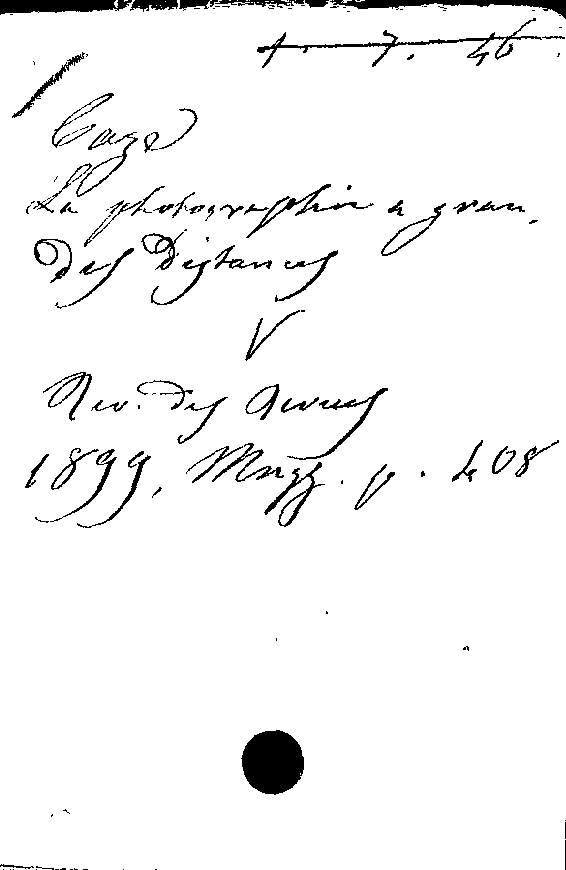 4. 7. 46
Caze
La photographie a gran-
des Distances
V
Rev. des Revues
1899, Magg. p. 408